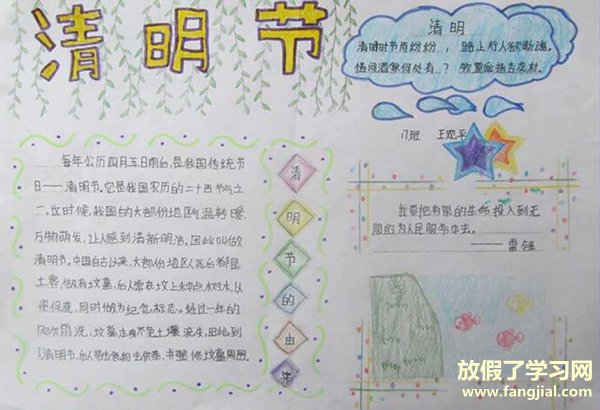 清明节
清明
清明时节雨纷纷，路上行人欲断魂。
借问酒家何处有？牧童遥指杏花村。
王观平
每年公历四月五日前后，是我国传统节
日——清明节。它是我国农历的二十四节气之
一。这时候，我国的大部份地区气温转暖，
万物萌发，让人感到清新明洁。因此叫做
清明节。中国自古以来，大部份地区人死后都是
土葬，做有坟墓，后人常在坟上
同时做为纪念标志。经过一年的
风吹雨洗，坟墓本身不免土壤流失，因此到
了清明节，后人带去食物去供养，并整修坟墓周围
清
明
节
的
由
来
我要把有限的生命投入到无
限的为人民服务中去。
——雷锋
放假了学习网
www.fangjial.com